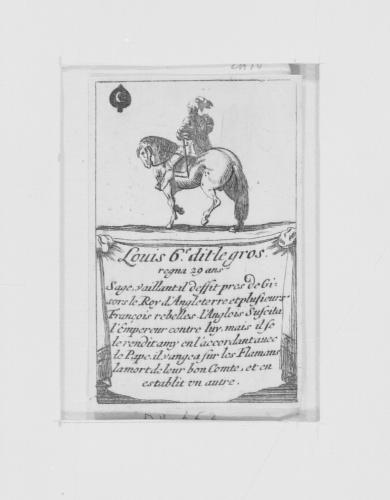 C
Louis 6.e dit le gros.
regna 29 ans
Sage, vaillant il deffit pres de Gi-
sors le Roy d'Angleterre et plusieurs
François rebelles. L'Anglois suscita
l'Empereur contre luy, mais il se
le rendit amy en l'accordant avec
le Pape. il vangea sur les Flamans
la mort de leur bon Comte, et en
establit vn autre.